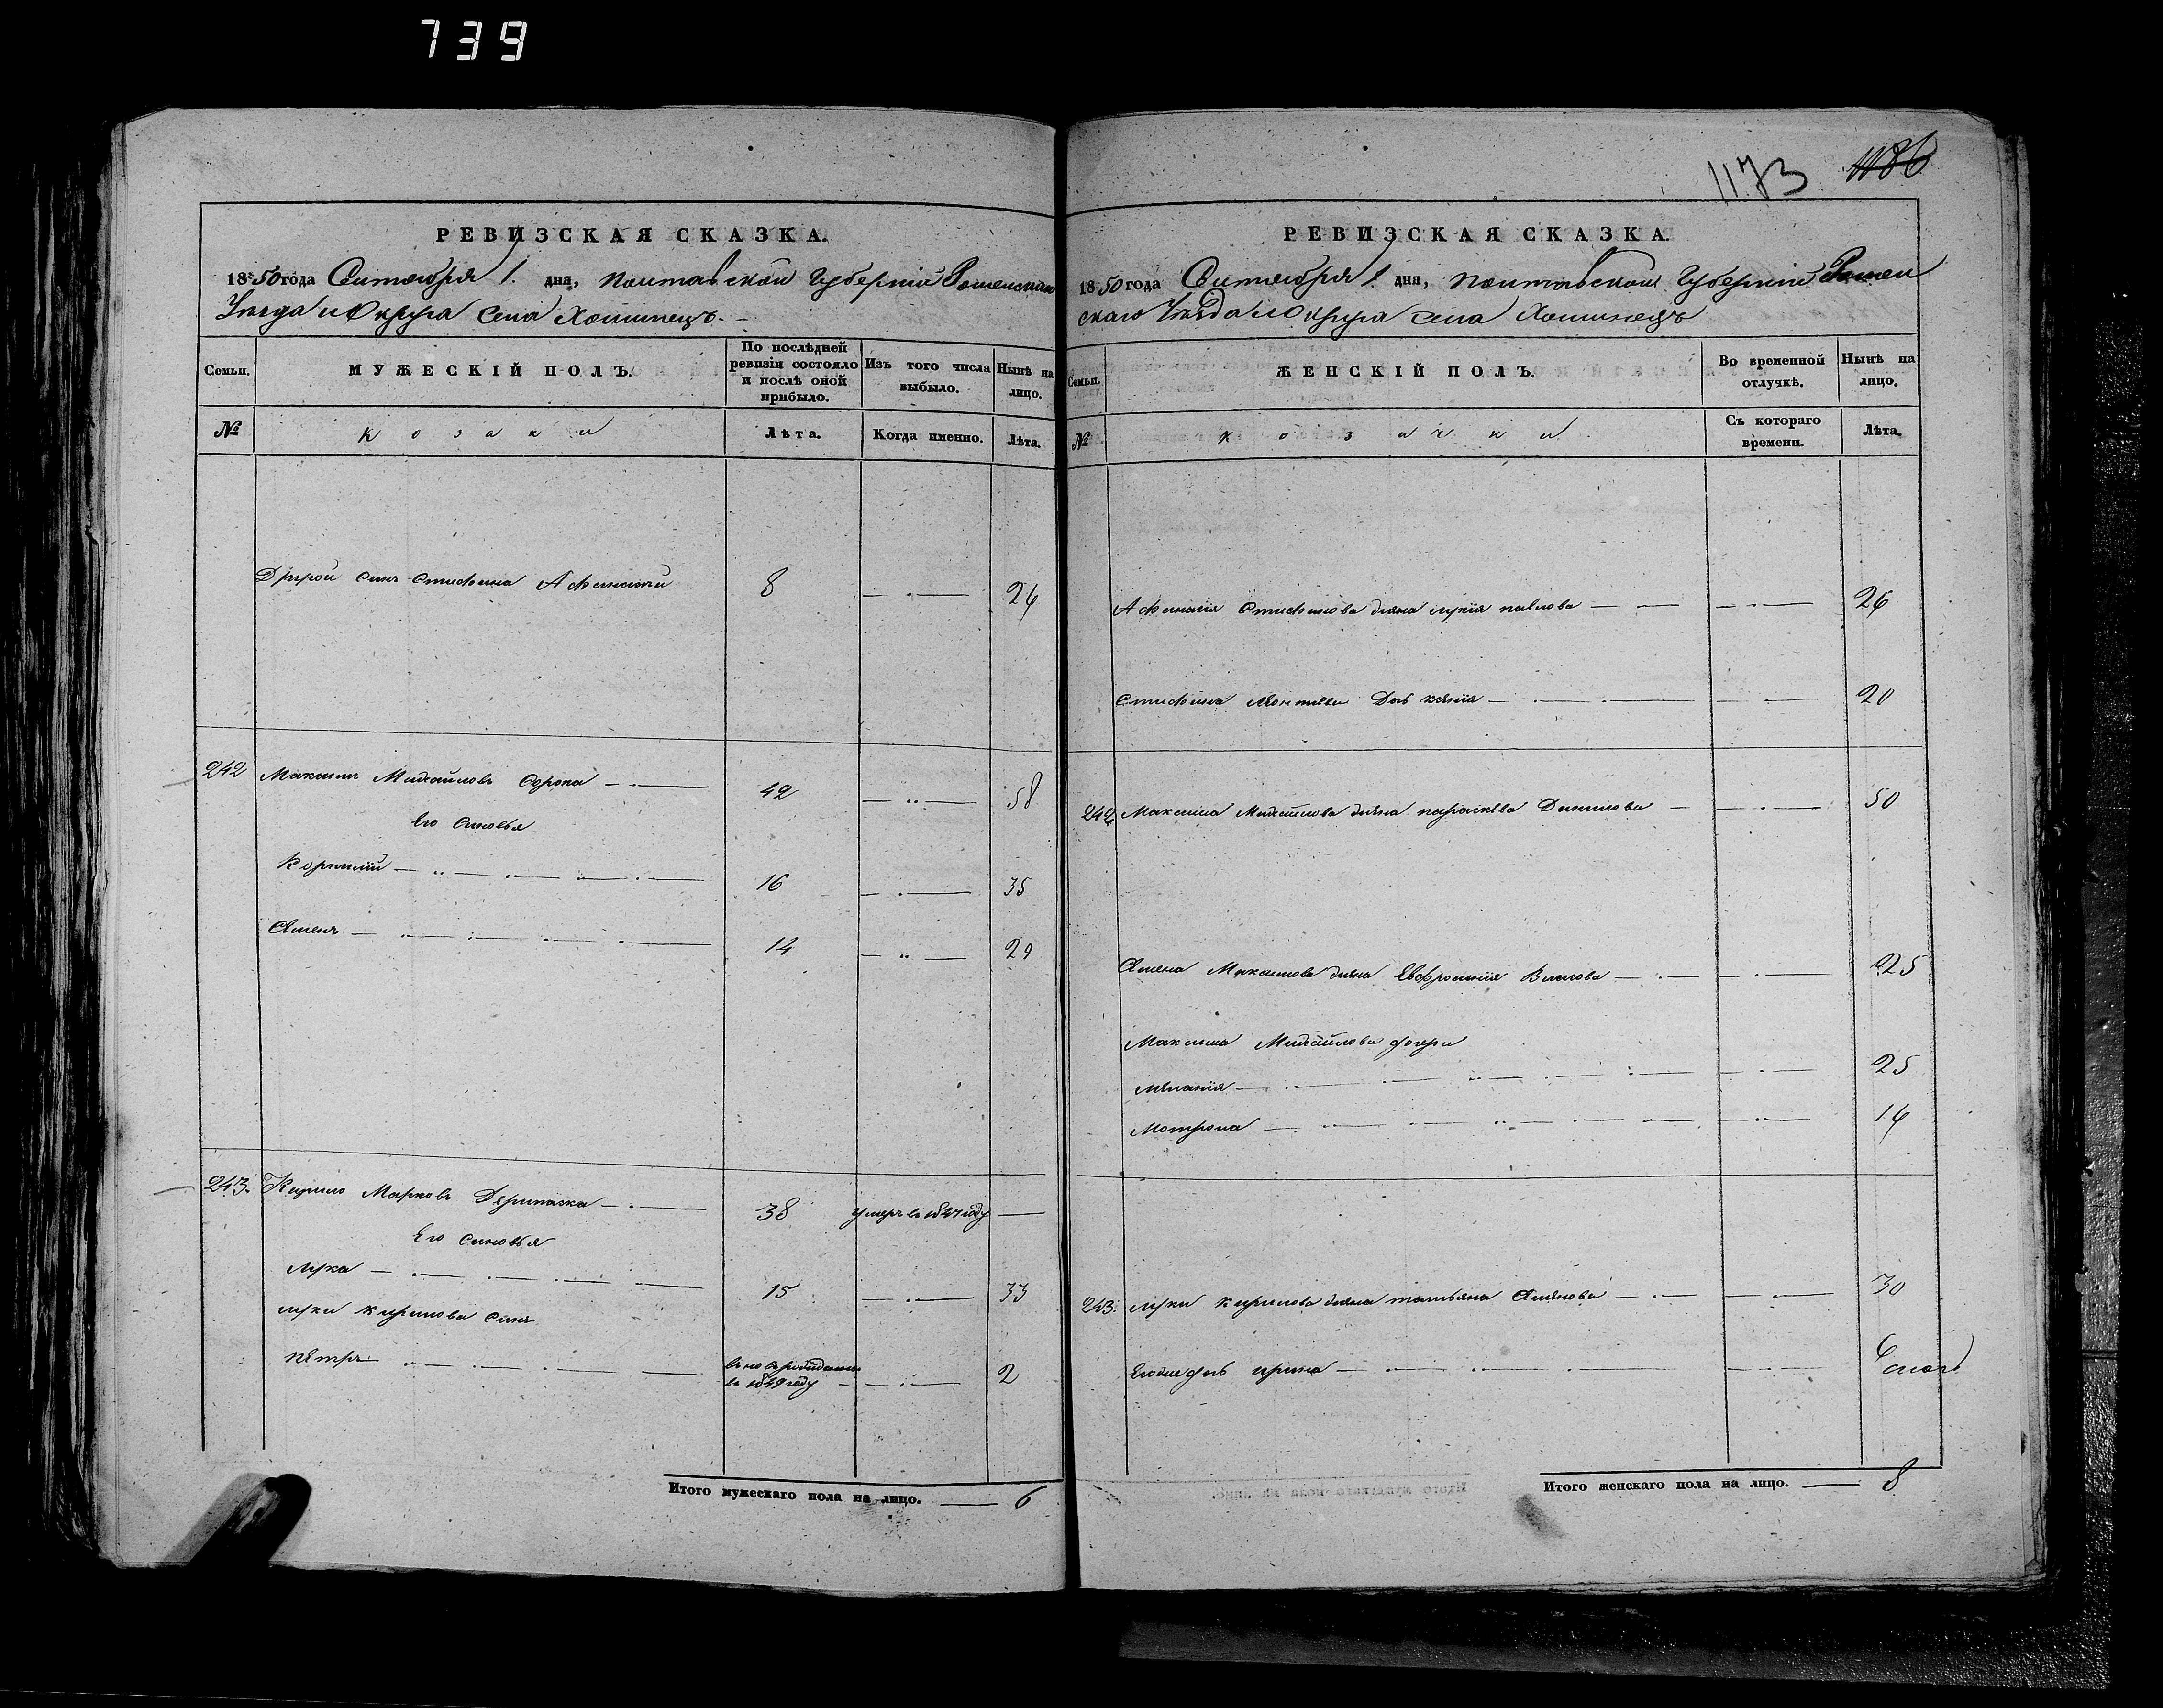 739
1173 1186
РЕВИЗСКАЯ СКАЗКА.
1850 года Сентября 1. дня, Полтавской Губерніи Роменскаго
Уезда и Округа села Хоминецъ. -
Семьи. МУЖЕСКІЙ ПОЛЪ. По послѣдней ревизіи состояло и послѣ оной прибыло. Изъ того числа выбыло. Нынѣ на лицо.
№ козаки Лѣта. Когда именно. Лѣта.
Другой синъ Стефана Афанасій 8 26
242 Максимъ Михайловъ Сорока 42 58
Его Синовья
Корнилій 16 35
Семенъ 14 29
243. Кирило Марковъ Дерипаска 38 умеръ въ 1847 году
Его Синовья
Лука 15 33
Луки Кирилова Синъ
Петръ
въ 1849 году 2
Итого мужескаго пола на лицо. 6
РЕВИЗСКАЯ СКАЗКА.
1850 года Сентября 1. дня, Полтавской Губерніи Ромен
скаго Уезда и Округа села Хоминецъ
Семьи. ЖЕНСКІЙ ПОЛЪ. Во временной отлучкѣ. Нынѣ на лицо.
№ козачки. Съ котораго времени. Лѣта.
Афанасія Стефанова жена Лукія Павлова 26
Стефана Леонтіева Дочь Ксенія 20
242 Максима Михайлова жена Параскева Данилова 50
Семена Максимова жена Евфросинія Власова 25
Максима Михайлова дочери
Меланія 25
Мотрона 14
243. Луки Кирилова жена Татьяна Семенова 30
Егоже дочь Ирина 6 месяц.
Итого женскаго пола на лицо. 8